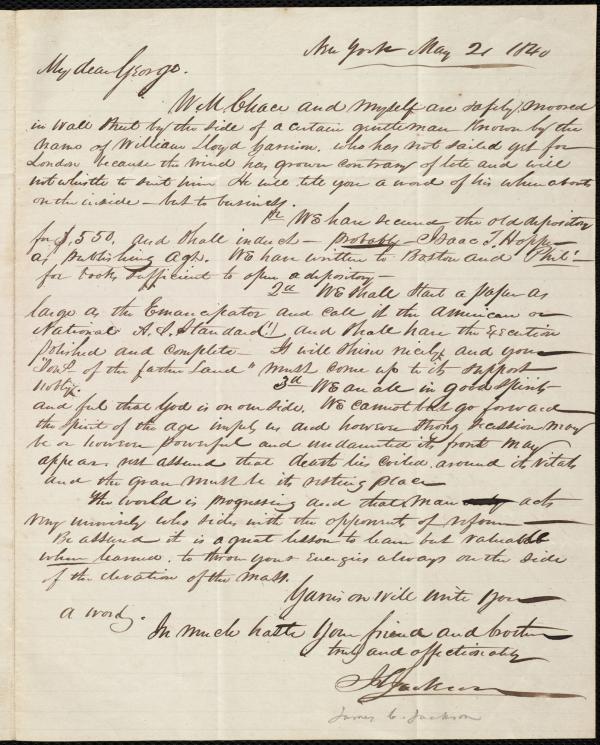 New York May 21 1840
My dear George.
Wm Chace and myself are safely moored
in Wall Street by the side of a certain gentleman known by the
name of William Lloyd Garrison, who has not sailed yet for
London because the wind has grown contrary of late and will
not whistle to suit him He will tell you a word of his whereabouts
on the inside — but to business.
We have secured the old depository
for $550, and shall induct — probably — Isaac T. Hopper
as Publishing Agt. We have written to Boston and Phil.
for books sufficient to open a depository —
2d We shall start a paper as
large as the Emancipator and call it the American or
National A. S. Standard! and shall have the Execution
polished and complete — It will shine nicely and you
of the father Land" must come up to its support
nobly.
3d We are all in good spirits
and feel that God is on our side. We cannot but go forward
the spirit of the age impels us and however strong secession may
be or however powerful and undaunted its front may
appear rest assured that death lies coiled around its vitals
and the grave must be its resting place
The world is progressing and that man acts
very unwisely who sides with the opponents of reform —
Be assured it is a great lesson to learn but valuable
when learned, to throw your Energies always on the side
of the elevation of the mass.
Garrison will write you
a word.
In much haste Your friend and brother
truly and affectionately
J C Jackson
James C. Jackson